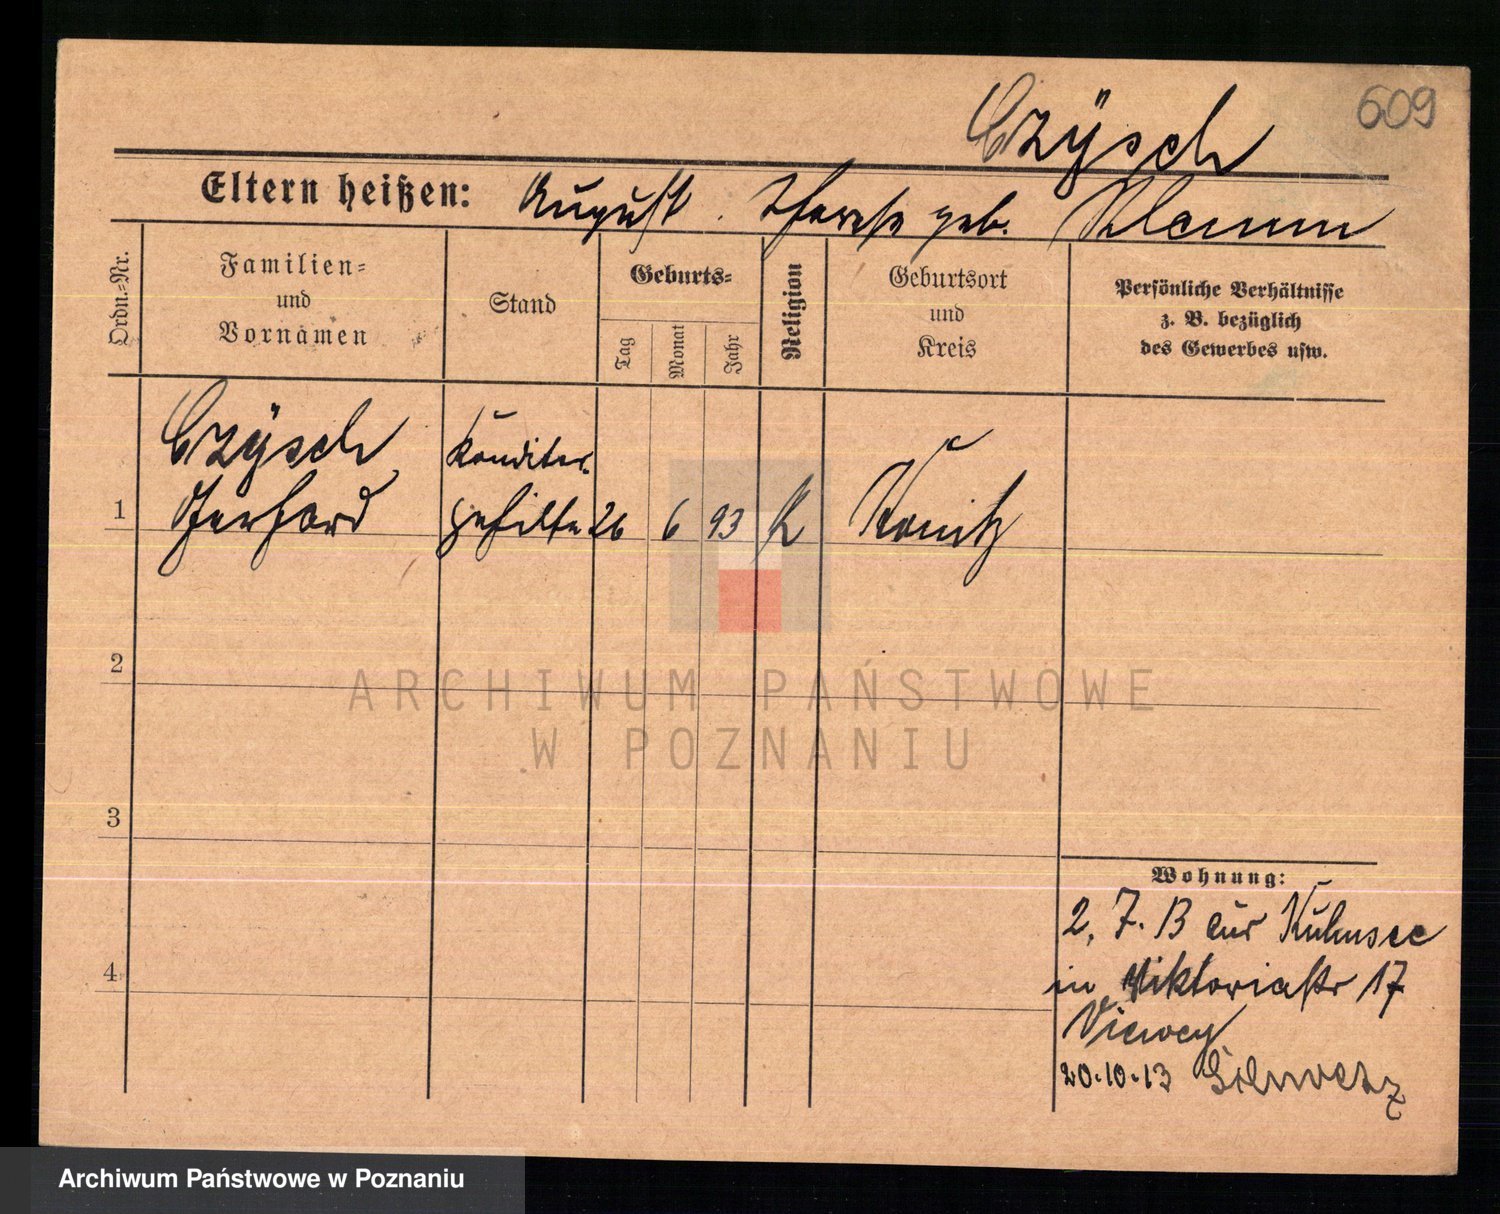 609
Czÿsch
Eltern heißen: August . Therese geb. Klamm
Ordn.=Nr.
Familien=
und
Vornamen
Stand
Geburts=
Tag
Monat
Jahr
Religion
Geburtsort
und
Kreis
Persönliche Verhältnisse
z. B. bezüglich
des Gewerbes usw.
Czÿsch Konditor
1 Gerhard gehilfe 26 6 93 K Konitz
2
3
4
ARCHIWUM PAŃSTWOWE
W POZNANIU
Wohnung:
2. 7. 13 aus Kulmsee
in Viktoriastr 17
20.10.13
Archiwum Państwowe w Poznaniu